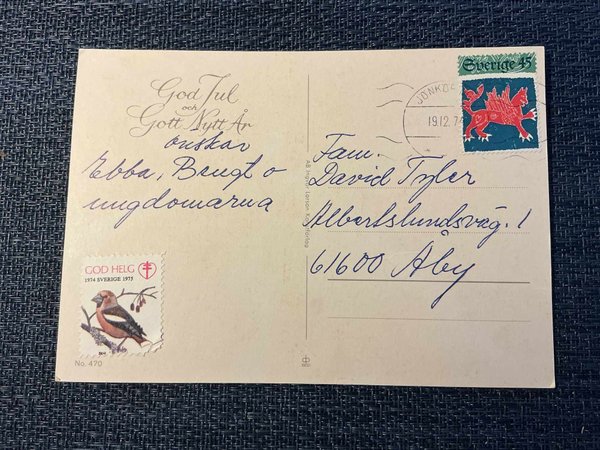 God Jul
och
Gott Nytt År
önskar
Ebba, Bengt o
ungdomarna
GOD HELG
1974 SVERIGE 1975
No. 470
Sverige 45
JÖNKÖ
19.12.74
Fam.
David Tyler
Albertslundsväg. 1
61600 Åby